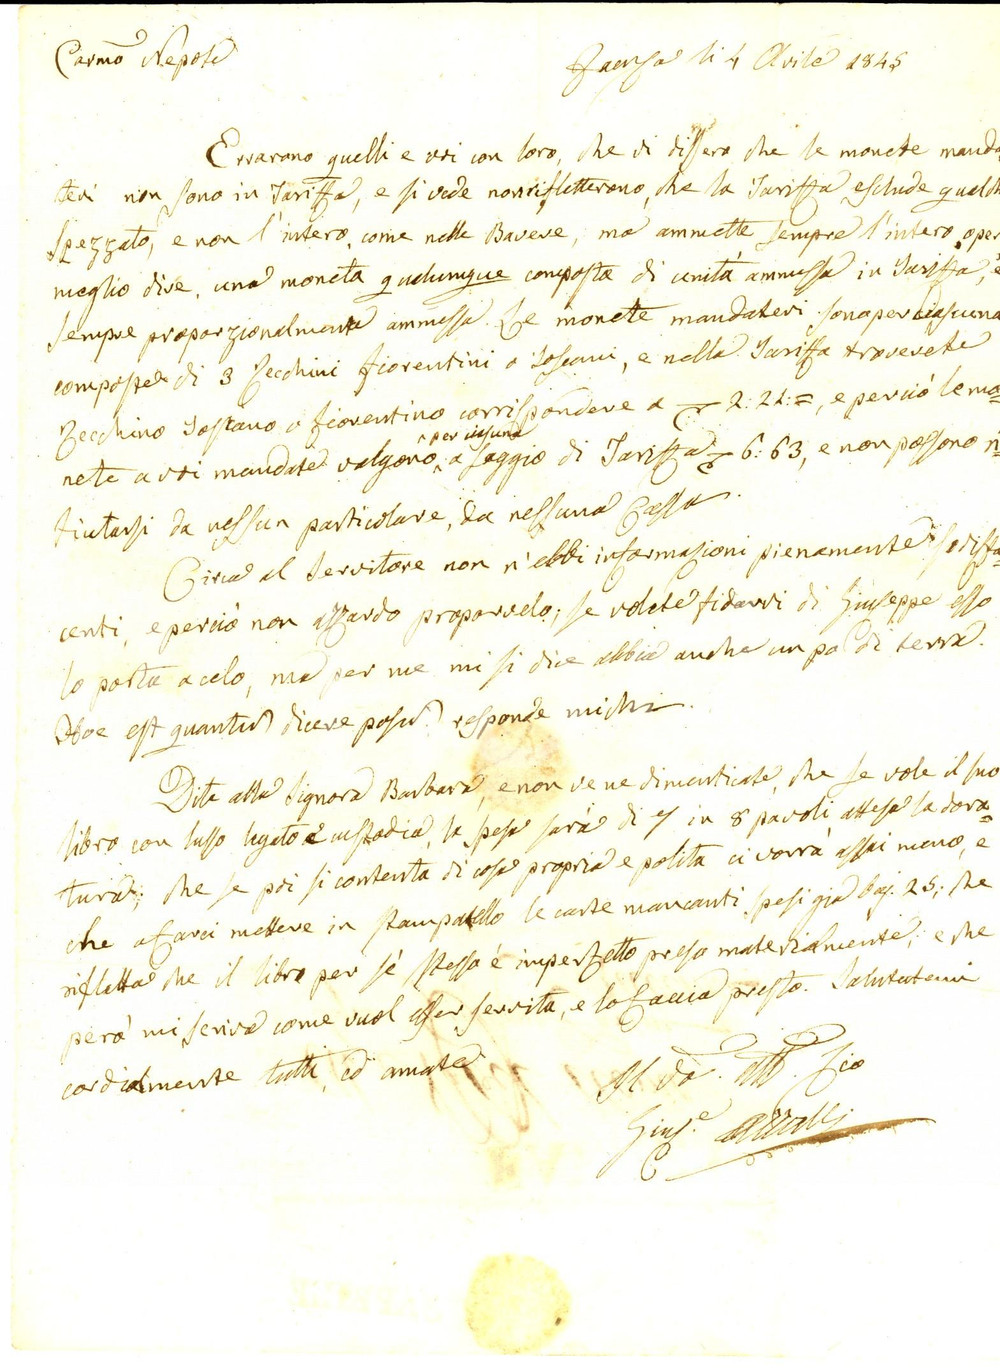 Carmo Nepote
Faenza li 4 Aprile 1845
Errarono quelli e voi con loro, che vi dissero che le monete manda=
tevi non sono in Tariffa, e si vede non rifletterono, che la Tariffa esclude qualch
spezzato, e non l'intero, come nelle Bavere, ma ammette sempre l'intero, o per
meglio dire, una moneta qualunque composta di unità ammessa in Tariffa, è
sempre proporzionalmente ammessa. Le monete mandatevi sono per ciascuna
composte di 3 Zecchini fiorentini o Toscani, e nella Tariffa troverete
Zecchino Toscano o fiorentino corrispondere a 2:21:=, e perciò le mo=
nete a voi mandate valgono per ciascuna a saggio di Tariffa 6:63, e non possono ri=
fiutarsi da nessun particolare, da nessuna Cassa.
Circa al Servitore non n'ebbi informazioni pienamente sodisfa=
centi, e perciò non azzardo proporvelo; se volete fidarvi di Giuseppe esso
lo porta a cielo, ma per me mi si dice abbia anche un po' di terra.
Hoc est quantum dicere possum responde mihi.
Dite alla Signora Barbara, e non ve ne dimenticate, che se vole il suo
libro con lusso legato e custodia, la spesa sarà di 7 in 8 pavoli attesa la dora=
tura; che se poi si contenta di cosa propria e polita ci vorrà assai meno, e
che a farci mettere in stampatello le carte mancanti spesi già baj. 25; che
rifletta che il libro per sé stesso è imperfetto preso materialmente; e che
però mi scriva come vuol esser servita, e lo faccia presto. Salutatemi
cordialmente tutti, ed amate
Il Vo. Zio
Giuse.